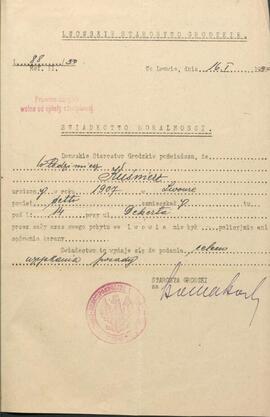 LWOWSKIE STAROSTWO GRODZKIE.
L. 88/30
We Lwowie, dnia 16.I 193
wolne od opłaty stemplowej
ŚWIADECTWO MORALNOŚCI.
Lwowskie Starostwo Grodzkie poświadcza, że
Włodzimierz Kuśnierz
urodzony w roku 1907 w Lwowie
powiat detto zamieszkały
pod l: 14 przy ul: Dekerta
przez cały czas swego pobytu we Lwowie nie był policyjnie ani
sądownie karany.
Świadectwo to wydaje się do podania celem
uzyskania posady
STAROSTA GRODZKI